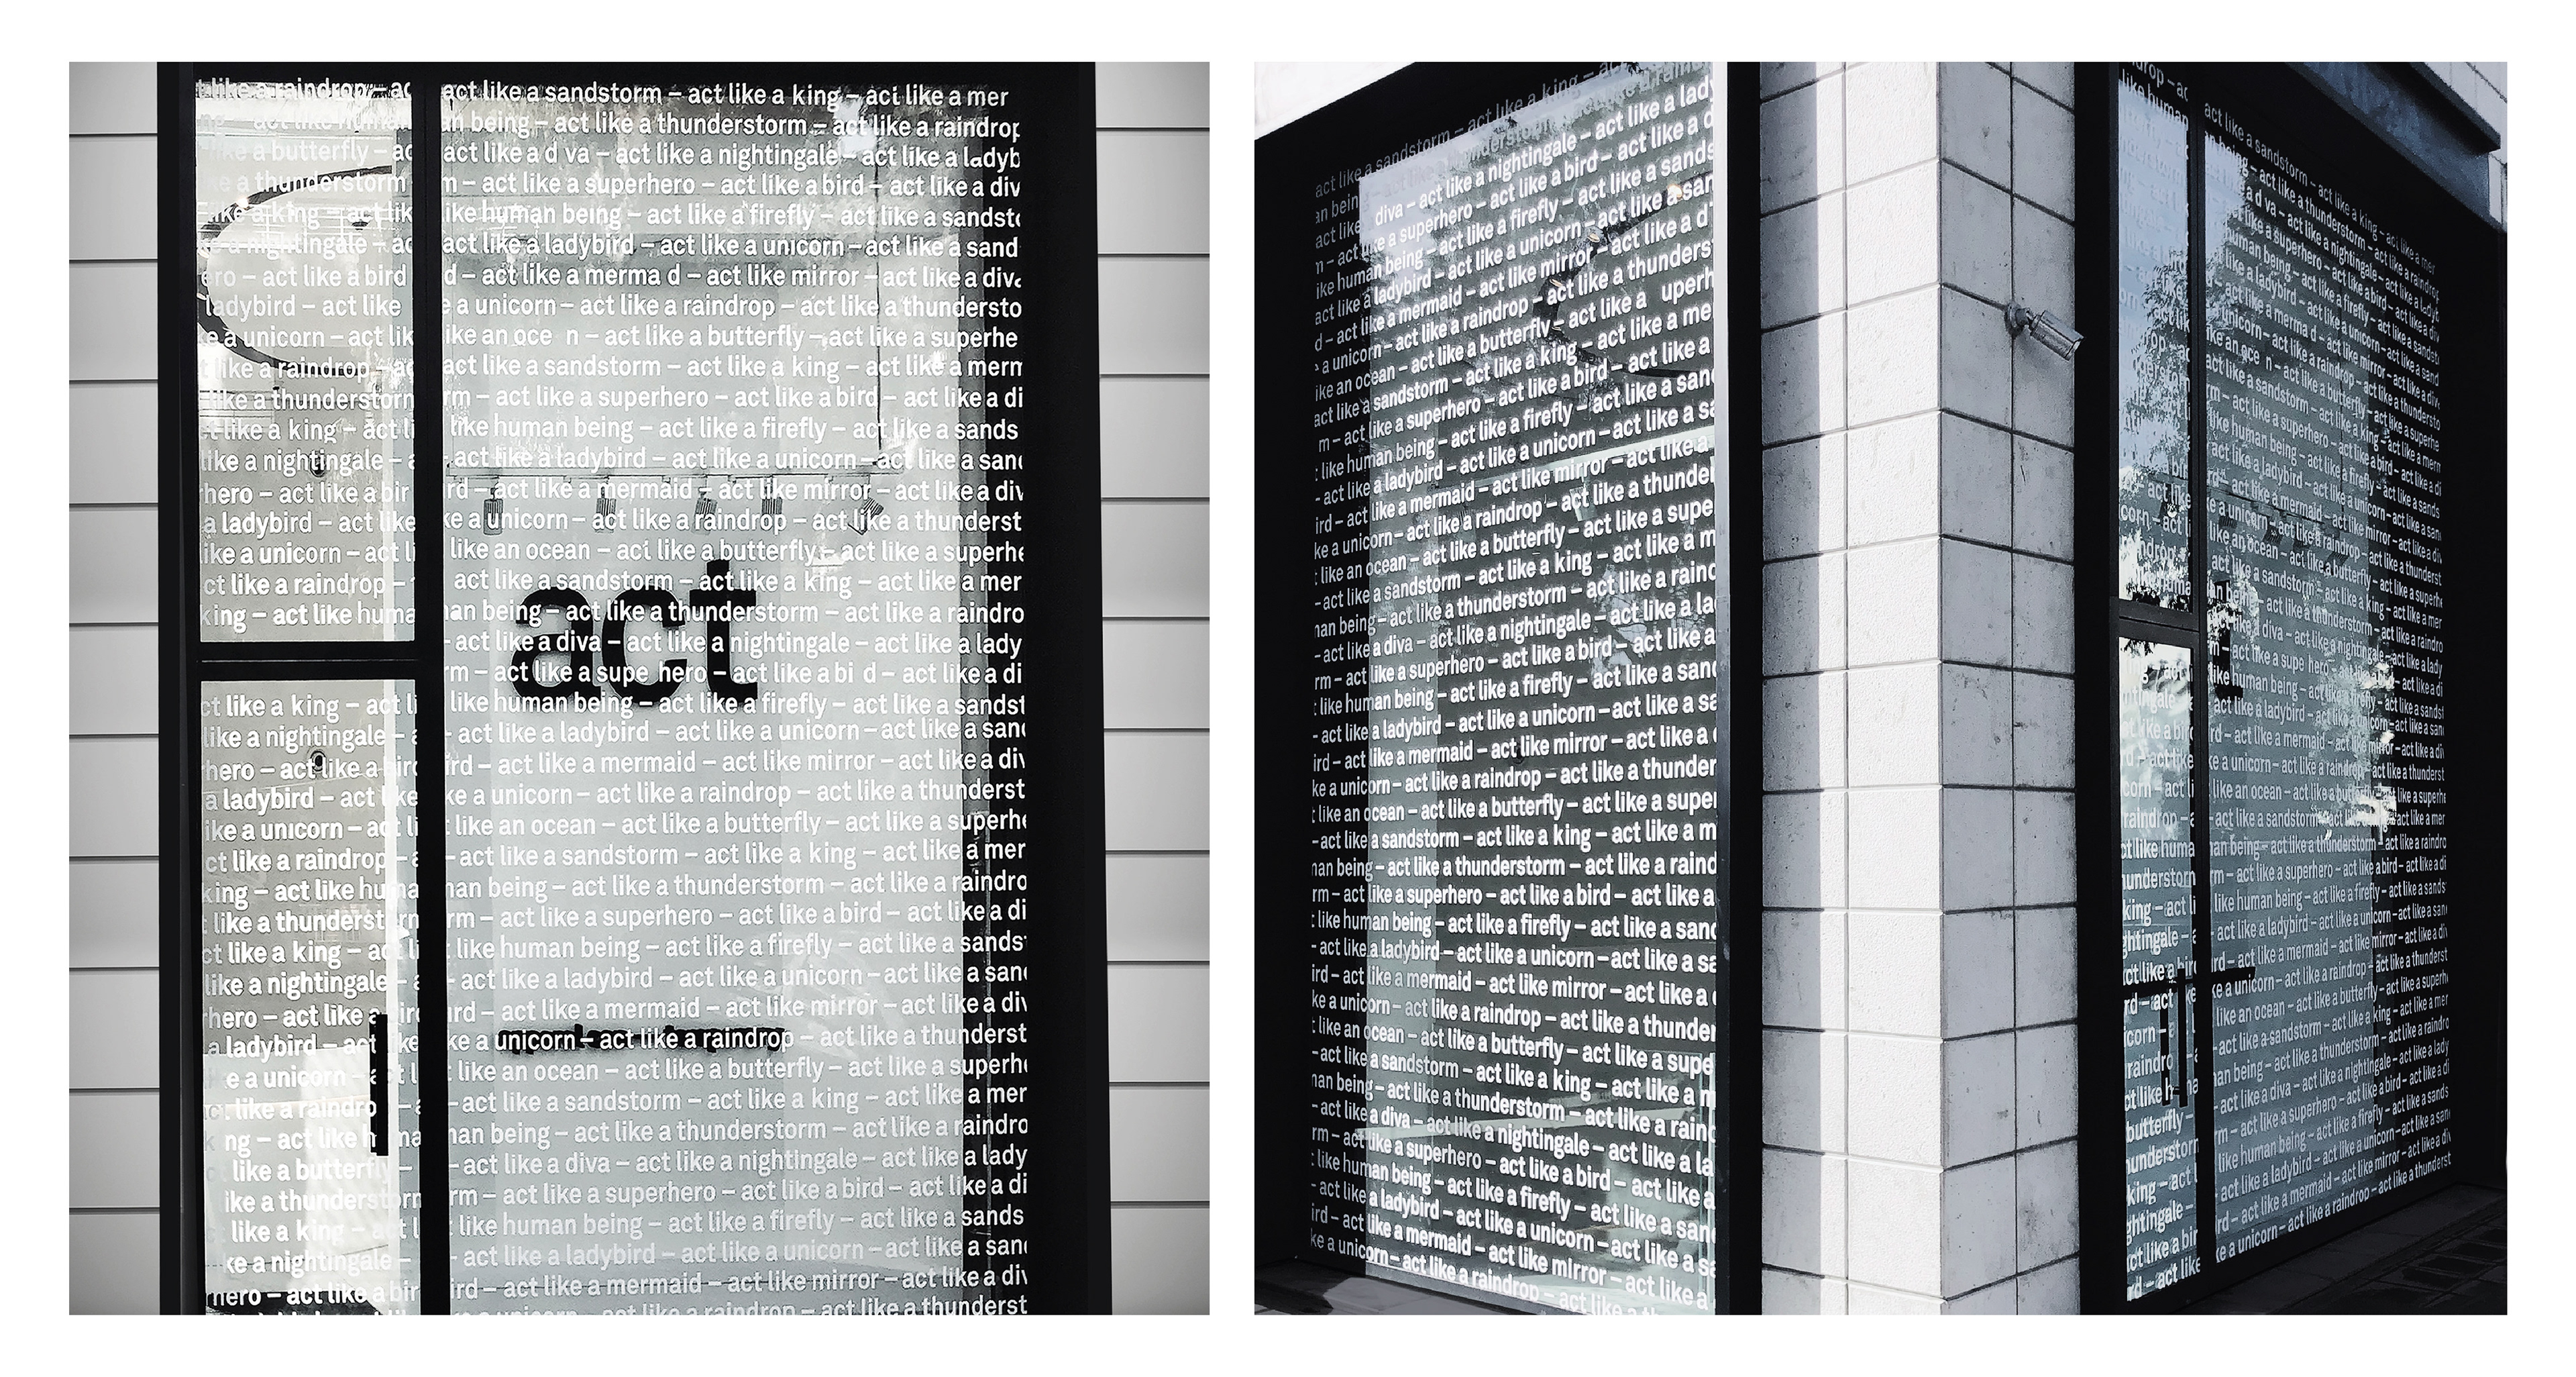 like a raindrop – ac
act like huma
like a butterfly – ac
ke a thunderstorm
like a king – act lik
e a nightingale – ac
ero – act like a bird
ladybird – act like
ke a unicorn – act lik
like a raindrop – ac
like a thunderstorm
t like a king – act li
like a nightingale –
hero – act like a bir
a ladybird – act like
like a unicorn – act li
ct like a raindrop –
king – act like huma
ct like a king – act li
like a nightingale –
hero – act like a bird
a ladybird – act like
ike a unicorn – act li
ct like a raindrop –
king – act like huma
t like a thunderstorm
ct like a king – act li
like a nightingale –
hero – act like a bird
a ladybird – act like
e a unicorn – act l
like a raindro
ng – act like h ma
like a butterfly –
ike a thunderstorm
like a king – act l
ke a nightingale –
hero – act like a bir
act like a sandstorm – act like a king – act like a mer
an being – act like a thunderstorm – act like a raindrop
act like a d va – act like a nightingale – act like a ladyb
m – act like a superhero – act like a bird – act like a div
like human being – act like a firefly – act like a sandsto
act like a ladybird – act like a unicorn – act like a sand
d – act like a merma d – act like mirror – act like a diva
e a unicorn – act like a raindrop – act like a thundersto
ike an oce n – act like a butterfly – act like a superhe
act like a sandstorm – act like a king – act like a merm
rm – act like a superhero – act like a bird – act like a di
like human being – act like a firefly – act like a sands
– act like a ladybird – act like a unicorn – act like a san
rd – act like a mermaid – act like mirror – act like a div
ke a unicorn – act like a raindrop – act like a thunderst
like an ocean – act like a butterfly – act like a superhe
act like a sandstorm – act like a king – act like a mer
act
an being – act like a thunderstorm – act like a raindro
– act like a diva – act like a nightingale – act like a lady
rm – act like a supe hero – act like a bi d – act like a di
like human being – act like a firefly – act like a sandst
– act like a ladybird – act like a unicorn – act like a san
rd – act like a mermaid – act like mirror – act like a div
ke a unicorn – act like a raindrop – act like a thunderst
like an ocean – act like a butterfly – act like a superhe
– act like a sandstorm – act like a king – act like a mer
an being – act like a thunderstorm – act like a raindro
rm – act like a superhero – act like a bird – act like a di
like human being – act like a firefly – act like a sands
– act like a ladybird – act like a unicorn – act like a san
rd – act like a mermaid – act like mirror – act like a div
ke a unicorn – act like a raindrop – act like a thunderst
like an ocean – act like a butterfly – act like a superhe
– act like a sandstorm – act like a king – act like a mer
an being – act like a thunderstorm – act like a raindro
– act like a diva – act like a nightingale – act like a lady
rm – act like a superhero – act like a bird – act like a di
like human being – act like a firefly – act like a sands
– act like a ladybird – act like a unicorn – act like a san
ird – act like a mermaid – act like mirror – act like a div
ke a unicorn – act like a raindrop – act like a thunderst
act like a sandstorm – act like a king – ac
an bein
act like diva – act like a nightingale – act like a lady
m – act like a superhero – act like a bird – act like a d
ike human being – act like a firefly – act like a sands
act like a ladybird – act like a unicorn – act like a san
d – act like a mermaid – act like mirror – act like a d
a unicorn – act like a raindrop – act like a thunders
ike an ocean – act like a butterfly – act like a uperh
act like a sandstorm – act like a king – act like a me
m – act like a superhero – act like a bird – act like a
like human being – act like a firefly – act like a san
– act like a ladybird – act like a unicorn – act like a sa
ird – act like a mermaid – act like mirror – act like a
ke a unicorn – act like a raindrop – act like a thunder
like an ocean – act like a butterfly – act like a supe
– act like a sandstorm – act like a king – act like a m
an being – act like a thunderstorm – act like a rain
– act like a diva – act like a nightingale – act like a la
rm – act like a superhero – act like a bird – act like a
like human being – act like a firefly – act like a san
– act like a ladybird – act like a unicorn – act like a sa
ird – act like a mermaid – act like mirror – act like a
ke a unicorn – act like a raindrop – act like a thunder
like an ocean – act like a butterfly – act like a super
– act like a sandstorm – act like a king – act like a m
an being – act like a thunderstorm – act like a raind
rm – act like a superhero – act like a bird – act like a
like human being – act like a firefly – act like a sand
– act like a ladybird – act like a unicorn – act like a sa
ird – act like a mermaid – act like mirror – act like a
ke a unicorn – act like a raindrop – act like a thunder
like an ocean – act like a butterfly – act like a supe
– act like a sandstorm – act like a king – act like a m
an being – act like a thunderstorm – act like a rain
– act like a diva – act like a nightingale – act like a la
rm – act like a superhero – act like a bird – act like a
like human being – act like a firefly – act like a san
– act like a ladybird – act like a unicorn – act like a s
ird – act like a mermaid – act like mirror – act like a
ke a unicorn – act like a raindrop – act like a
act like a sandstorm – act like a king – act like a mer
an being – act like a thunderstorm – act like a raindrop
a d va – act like a nightingale – act like a ladyb
a superhero – act like a bird – act like a div
human being – act like a firefly – act like a sandst
like a ladybird – act like a unicorn – act like a sand
act like a merma d – act like mirror – act like a div
unicorn – act like a raindrop – act like a thundersto
ike an oce n – act like a butterfly – act like a superhe
act like a sandstorm – act like a king – act like a mern
m – act like a superhero – act like a bird – act like a di
like human being – act like a firefly – act like a sands
act like a ladybird – act like a unicorn – act like a san
rd – act like a mermaid – act like mirror – act like a div
ke a unicorn – act like a raindrop – act like a thunderst
like an ocean – act like a butterfly – act like a superh
act like a sandstorm – act like a king – act like a mer
an being – act like a thunderstorm – act like a raindro
a diva – act like a nightingale – act like a lady
rm – act like a supe hero – act like a di
like human being – act like a firefly – act like a sandst
act like a ladybird – act like a unicorn – act like a san
rd – act like a mermaid – act like mirror – act like a di
ke a unicorn – act like a raindrop – act like a thunderst
like an ocean – act like a butterfly – act like a superhe
– act like a sandstorm – act like a mer
an being – act like a thunderstorm – act like a raindro
rm – act like a superhero – act like a bird – act like a di
like human being – act like a firefly – act like a sands
– act like a ladybird – act like a unicorn – act like a san
ird – act like a mermaid – act like mirror – act like a div
ke a unicorn – act like a raindrop – act like a thunderst
like an ocean – act like a butterfly – act like a superh
– act like a sandstorm – act like a king – act like a mer
an being – act like a thunderstorm – act like a raindro
– act like a diva – act like a nightingale – act like a lady
rm – act like a superhero – act like a bird – act like a di
like human being – act like a firefly – act like a sands
– act like a ladybird – act like a unicorn – act like a san
rd – act like a mermaid – act like mirror – act like a div
ke a unicorn – act like a raindrop – act like a thunderst